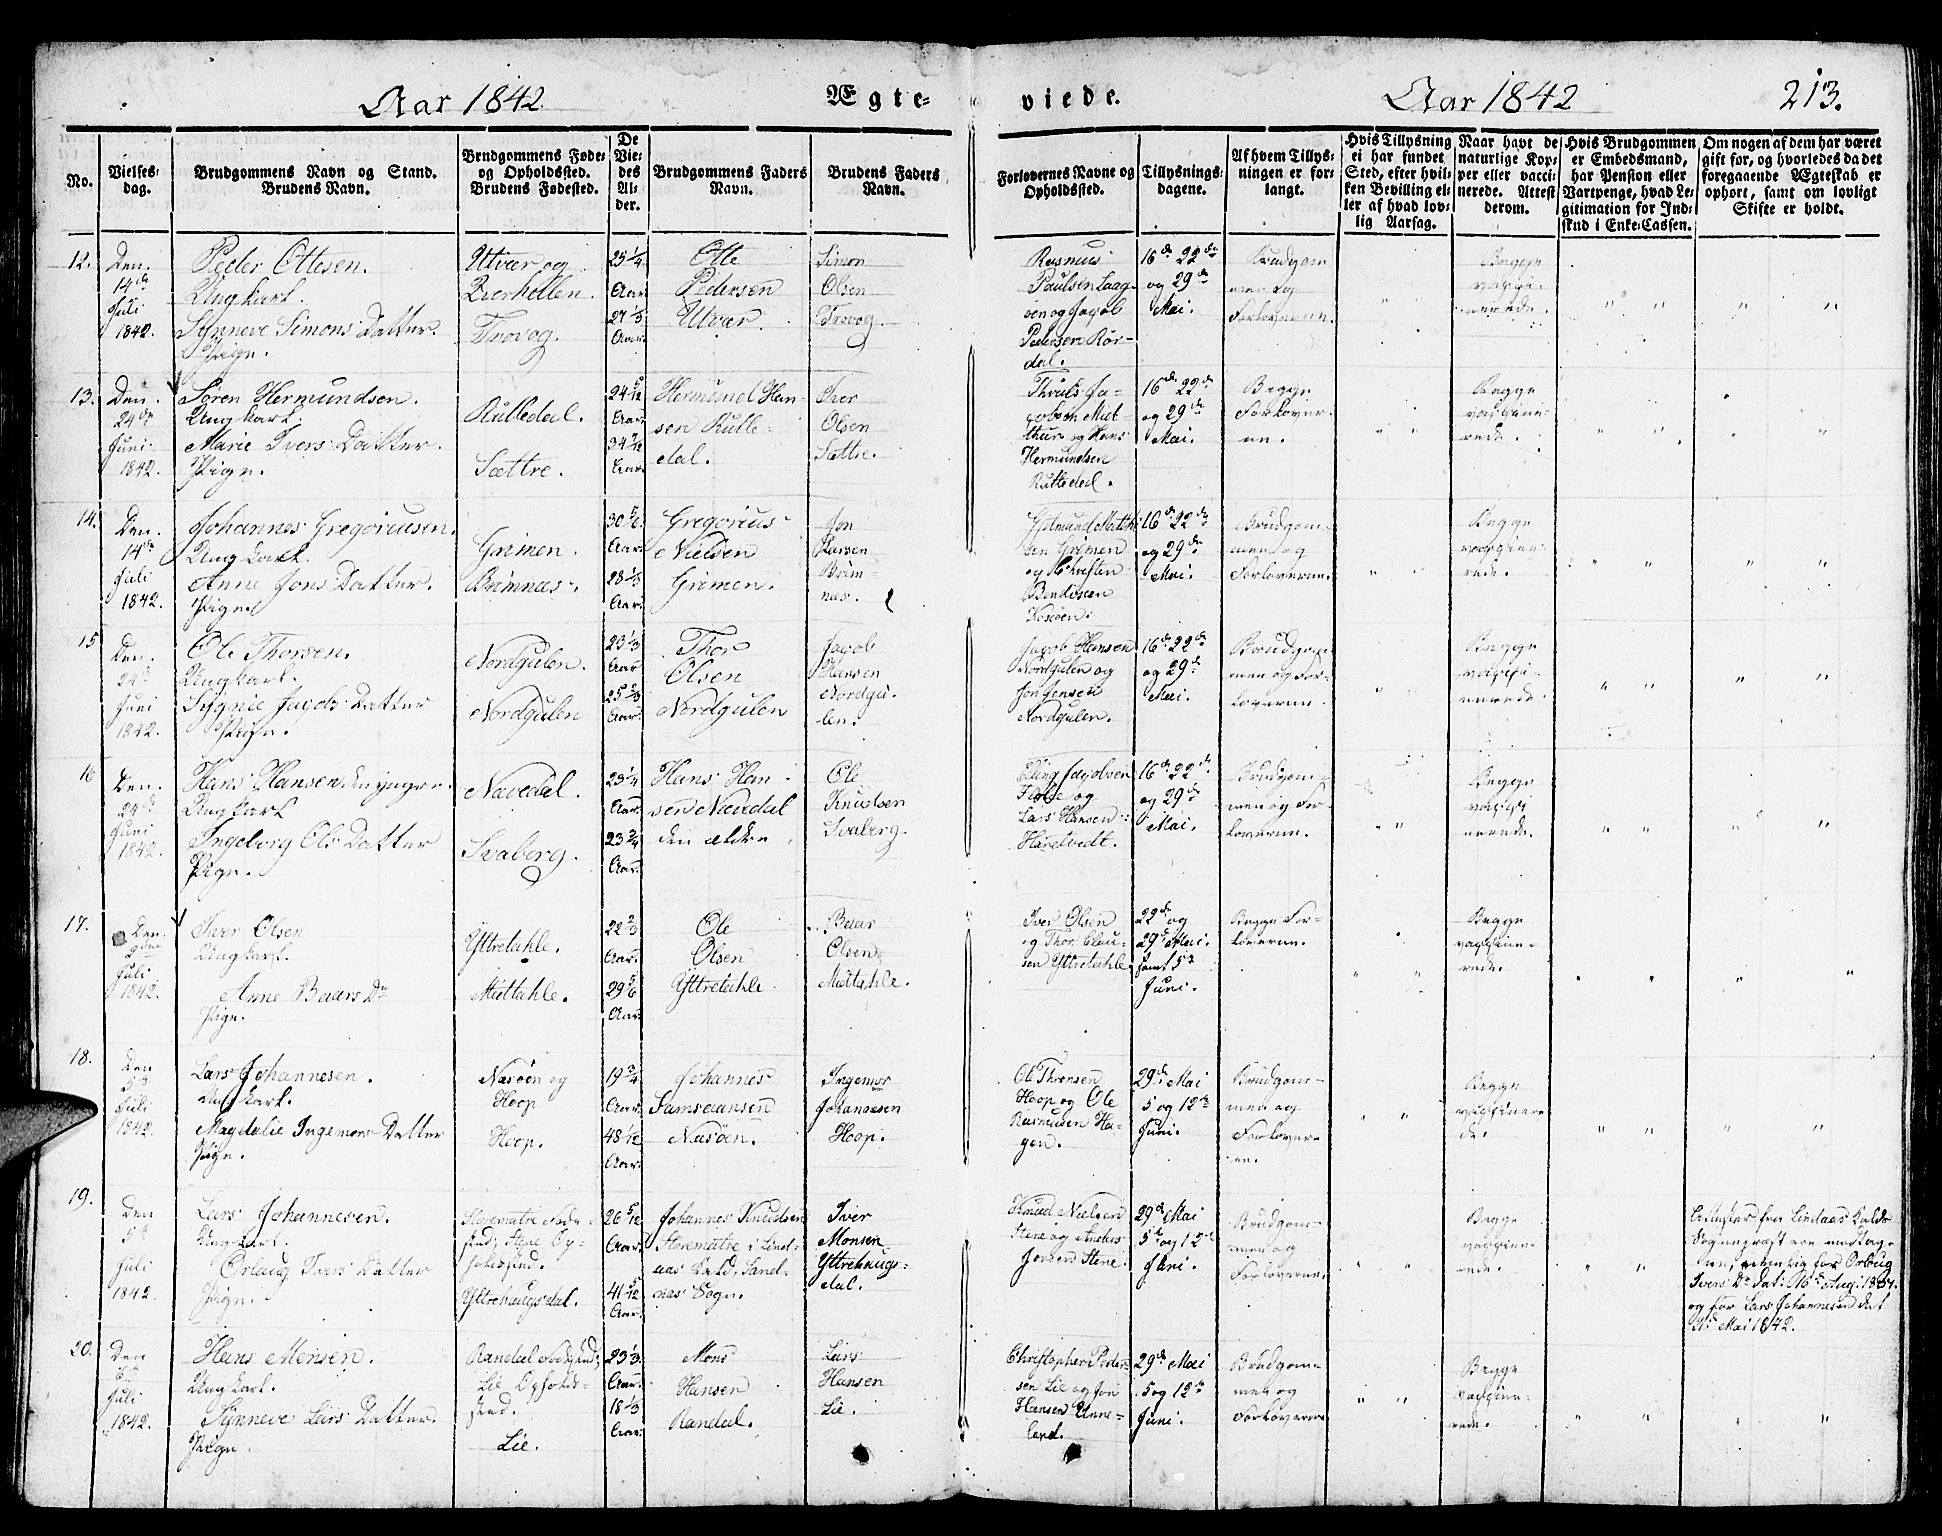 Aar 1842
Ægte-
viede.
Aar 1842
213.
No.
Vielses-
dag.
Brudgommens Navn og Stand.
Brudens Navn.
Brudgommens Føde-
og Opholdsted.
Brudens Fødested.
De
Vie-
des
Al-
der.
Brudgommens Faders
Navn.
Brudens Faders
Navn.
Forlovernes Navne og
Opholdsted.
Tillysnings-
dagene.
Af hvem Tillys-
ningen er for-
langt.
Hvis Tillysning
ei har fundet
Sted, efter hvil-
ken Bevilling el-
ler af hvad lov-
lig Aarsag.
Naar havt de
naturlige Kop-
per eller vacci-
nerede. Attest
derom.
Hvis Brudgommen
er Embedsmand,
har Pension eller
Vartpenge, hvad Le-
gitimation for Ind-
skud i Enke-Cassen.
Om nogen af dem har været
gift før, og hvorledes da det
foregaaende Ægteskab er
ophørt, samt om lovligt
Skifte er holdt.
12.
Den
14de
Juli
1842.
Peder Ottesen.
Ungkarl.
Synneve Simons Datter.
Pige.
Utvær og
Trovog.
25 1/4
Aar.
27 1/3
Aar.
Otte
Pedersen
Utvær.
Simon
Olsen
Trovog
Rasmus
Paulsen Laag-
sen og Jacob
Pedersen Rør-
dal.
16de 22de
og 29de
Mai.
Brudgom
men og
Forloverne.
Begge
vacci-
nerede.
13.
Den
24de
Juni
1842.
Søren Hermundsen.
Ungkarl.
Marie Ivers Datter.
Pige.
Rutledal.
Sættre.
24 5/12
Aar.
34 7/12
Aar.
Hermund Han-
sen Rutle-
dal.
Iver
Olsen
Sættre.
cobsen
og Hans
Hermundsen
Rutledal.
16de 22de
og 29de
Mai.
Begge
Forlover-
ne.
Begge
vaccine-
rede.
14.
Den
14de
Juli
1842.
Johannes Gregoriusen.
Ungkarl.
Anne Jons Datter.
Pige.
Grimen.
Brimnæs.
30 5/6
Aar.
28 1/3
Aar.
Gregorius
Nielsen
Grimen.
Jon
Larsen
Brim-
næs.
sen Grimen
og Christen
Bendixen
16de 22de
og 29de
Mai.
Brudgom-
men og
Forloverne.
Begge
vaccine-
rede.
15
Den
24de
Juni
1842.
Ole Thorsen.
Ungkarl.
Sygnie Jacobs Datter
Pige.
Nordgulen.
Nordgulen
23 1/3
Aar
25 2/3
Aar.
Thor
Olsen
Nordgulen
Jacob
Hansen
Nordgu-
len.
Jacob Hansen
Nordgulen og
Jon Jensen
Nordgulen.
16de 22de
og 29de
Mai.
Brudgom-
men og For-
loverne.
Begge
vacci-
nerede.
16
Den
24de
Juni
1842.
Hans Hansen den yngre.
Ungkarl
Ingeborg Ols Datter
Pige.
Nævedal.
Svaberg.
23 1/4
Aar.
23 3/4
Aar.
Hans Han-
sen Nævdal
den ældre.
Ole
Knudsen
Svaberg.
Elling Jacobsen
Flolie og
Lars Hansen
Hantvedt.
16de 22de
og 29de
Mai.
Brudgom-
men og For-
loverne.
Begge
vacci
nerede.
17.
Den
Juli
1842.
Iver Olsen
Ungkarl.
Anne Beiars Dr
Pige.
Yttretahle.
Mittahle.
22 2/3
Aar.
29 5/6
Aar.
Ole
Olsen
Yttretahle
Beiar
Olsen
Mittahle.
Iver Olsen
og Thor Clau-
sen Yttretahle
22de og
29de Mai.
samt 5te
Juni.
Begge For-
loverne.
Begge
vaccine-
rede.
18.
Den
5te
Juli
1842.
Lars Johannesen.
Ungkarl.
Magdelie Ingemors Datter
Pige.
Nasøen og
Hoop
Hoop.
19 3/4
Aar.
48 1/12
Aar.
Johannes
Samsonsen
Nasøen.
Ingemor
Johannesen
Hoop.
Ole Thorsen
Hoop og Ole
Rasmusen Ha-
gen.
29de Mai
5 og 12te
Juni.
Brudgom-
men og
Forlover-
ne.
Begge
vaccinere-
de.
19.
Den
5te
Juli
1842.
Lars Johannesen.
Ungkarl.
Orlaug Ivers Datter
Pige.
Storematre Føde-
sted, Stene Op-
holdsted.
Yttrehaugsdal.
26 5/12
Aar.
41 5/12
Aar.
Johannes Knudsen
Storematre i Lind-
aas Præld, Sand-
næs Sogn.
Iver
Monsen
Yttrehaugs-
dal.
Knud Nielsen
Stene og Anders
Jensen Stene.
29de Mai
5te og 12te
Juni.
Brudgom-
men og
Forloverne.
Begge
vaccine-
rede.
Attester fra Lindaas Kalds
Sognepræst ere modtag-
ne, nemlig for Orlaug
Ivers Dr dat: 16de Aug: 1837.
og for Lars Johannesen dat
21de Mai 1842.
20.
Den
Juli
1842.
Hans Monsen.
Ungkarl.
Synneve Lars Datter.
Pige
Randal Fødested;
Lie Opholds-
sted.
Lie.
23 1/3
Aar.
18 1/3
Aar.
Mons
Hansen
Randal.
Lars
Hansen
Lie.
Christopher Peder-
sen Lie og Jon
Hansen Unne-
land.
29de Mai
5 og 12te
Juni.
Brudgom-
men og
Forloverne
Begge
vaccine-
rede.